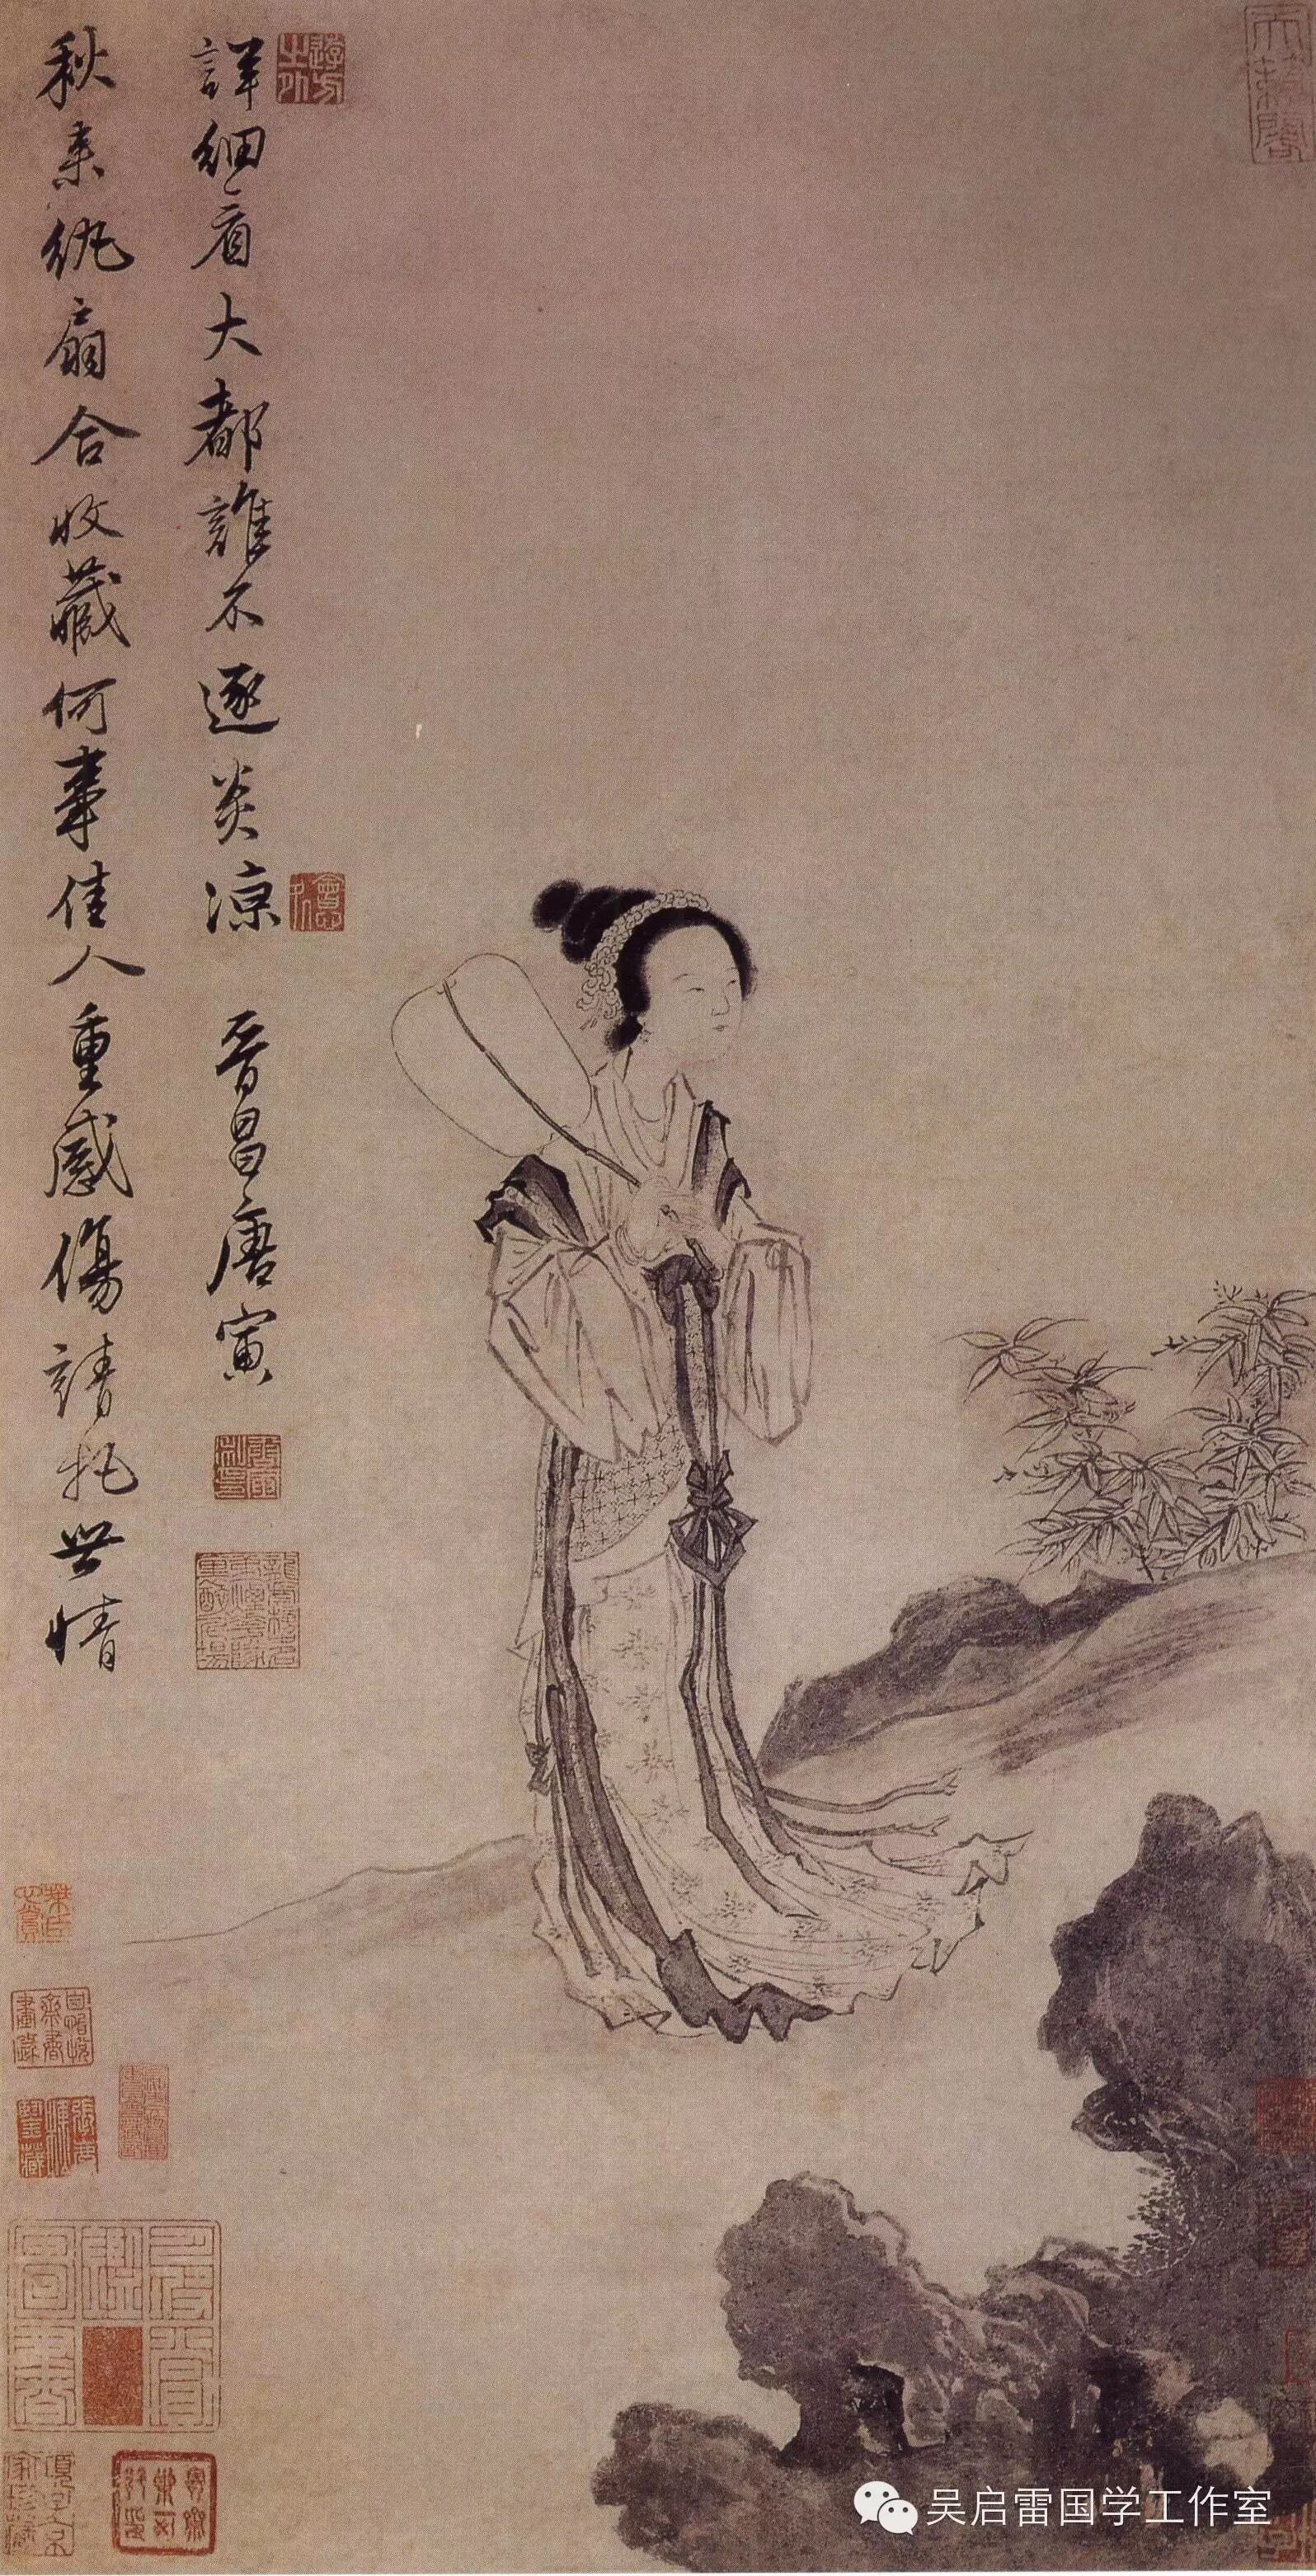 秋來紈扇合收藏何事佳人重感傷請托世情
詳細看大都誰不逐炎涼 晉昌唐寅
天籟閣
吴启雷国学工作室